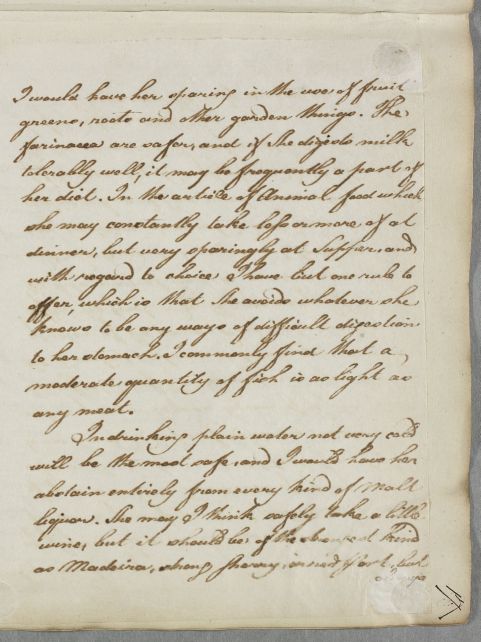 I would have her sparing in the use of fruit
greens, roots and other garden things. The
farinacea are safer, and if She digests milk
tolerably well, it may be frequently a part of
her diet. In the article of Animal food which
she may constantly take less or more of at
dinner, but very sparingly at Supper, and
with regard to choice I have but one rule to
offer, which is that She avoids whatever she
knows to be any ways of difficult digestion
to her stomach. I commonly find that a
moderate quantity of fish is as light as
any meat.
In drinking plain water not very cold
will be the most safe, and I would have her
abstain entirely from every kind of Malt
liquor. She may I think safely take a little
wine, but it should be of the strongest kind
as Madeira, strong sherry, or red Port, but
always